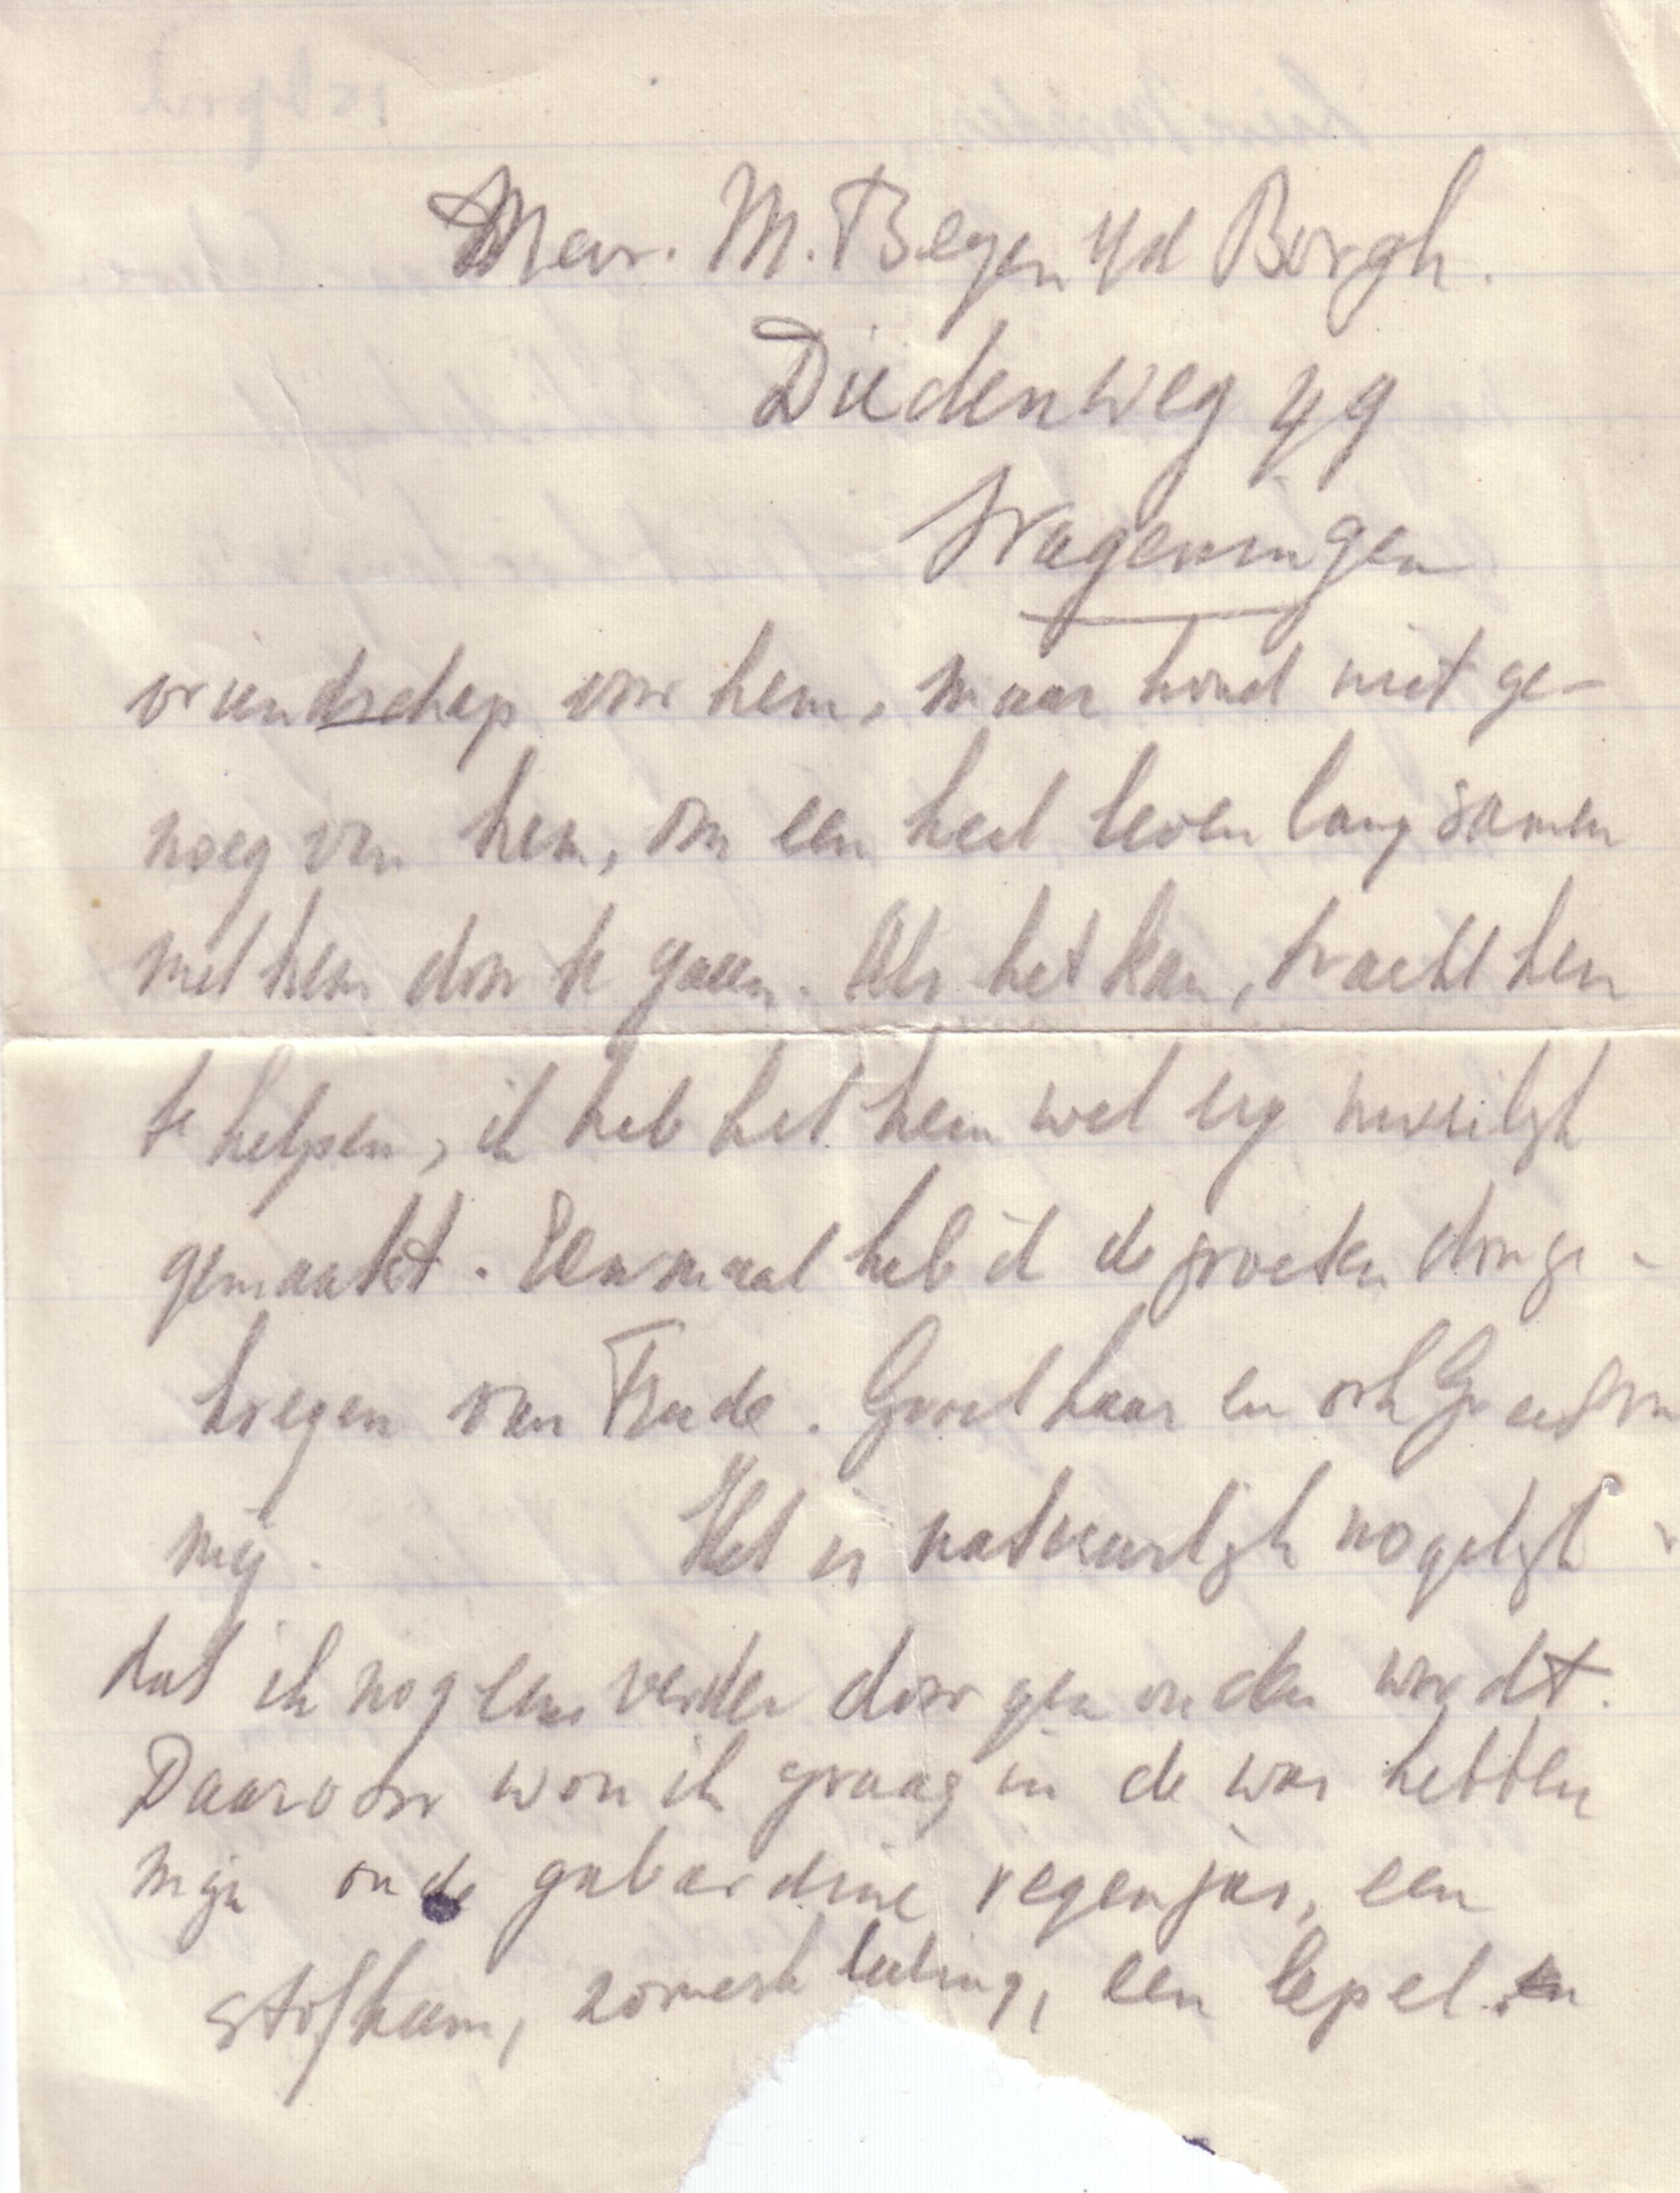 Mevr. M. Beyen v/d Borgh.
Diedenweg 49
Wageningen
vriendschap voor hem, maar houd niet ge-
noeg van hem, om een heel leven lang samen
met hem door te gaan. Als het kan, tracht hem
te helpen, ik heb het hem wel erg moeilijk
gemaakt. Eenmaal heb ik de groeten doorge-
kregen van Trude. Groet haar en ook Greet van
mij. Het is natuurlijk mogelijk
dat ik nog eens verder doorgezonden wordt.
Daarvoor wou ik graag in de was hebben
mijn oude gabardine regenjas, een
stofkam, zomerkleeding, een lepel.